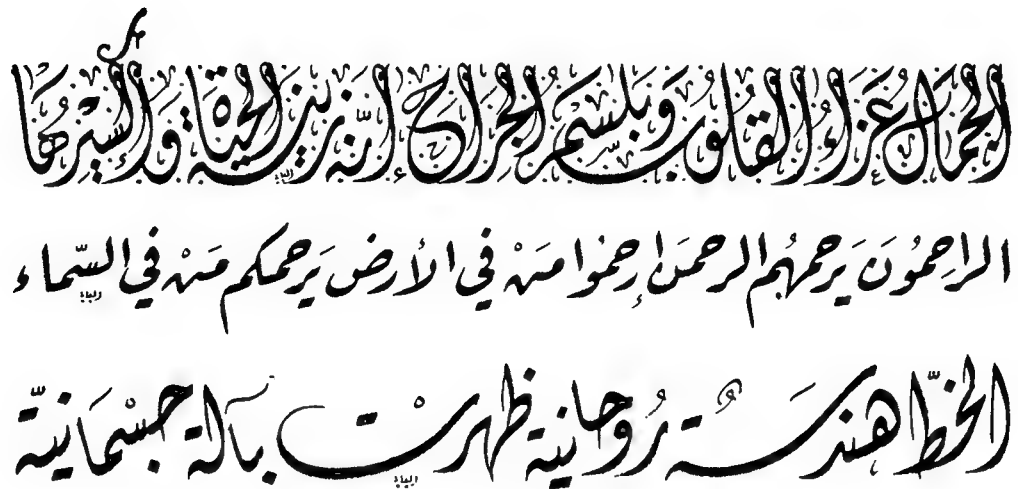 الجُمَالُ عَزَاءُ القُلُوبِ وَبَلْسَمُ الجِرَاحِ إنّه زين الحياة وَإكسيرُهَا
الراحِمُونَ يَرحمهُم الرحمَن إرحمُوا مَنْ في الأرض يَرحمكم مَنْ في السّماء
الخطّ هندسَةٌ رُوحانية ظهرتْ بآلة جسْمَانيّة